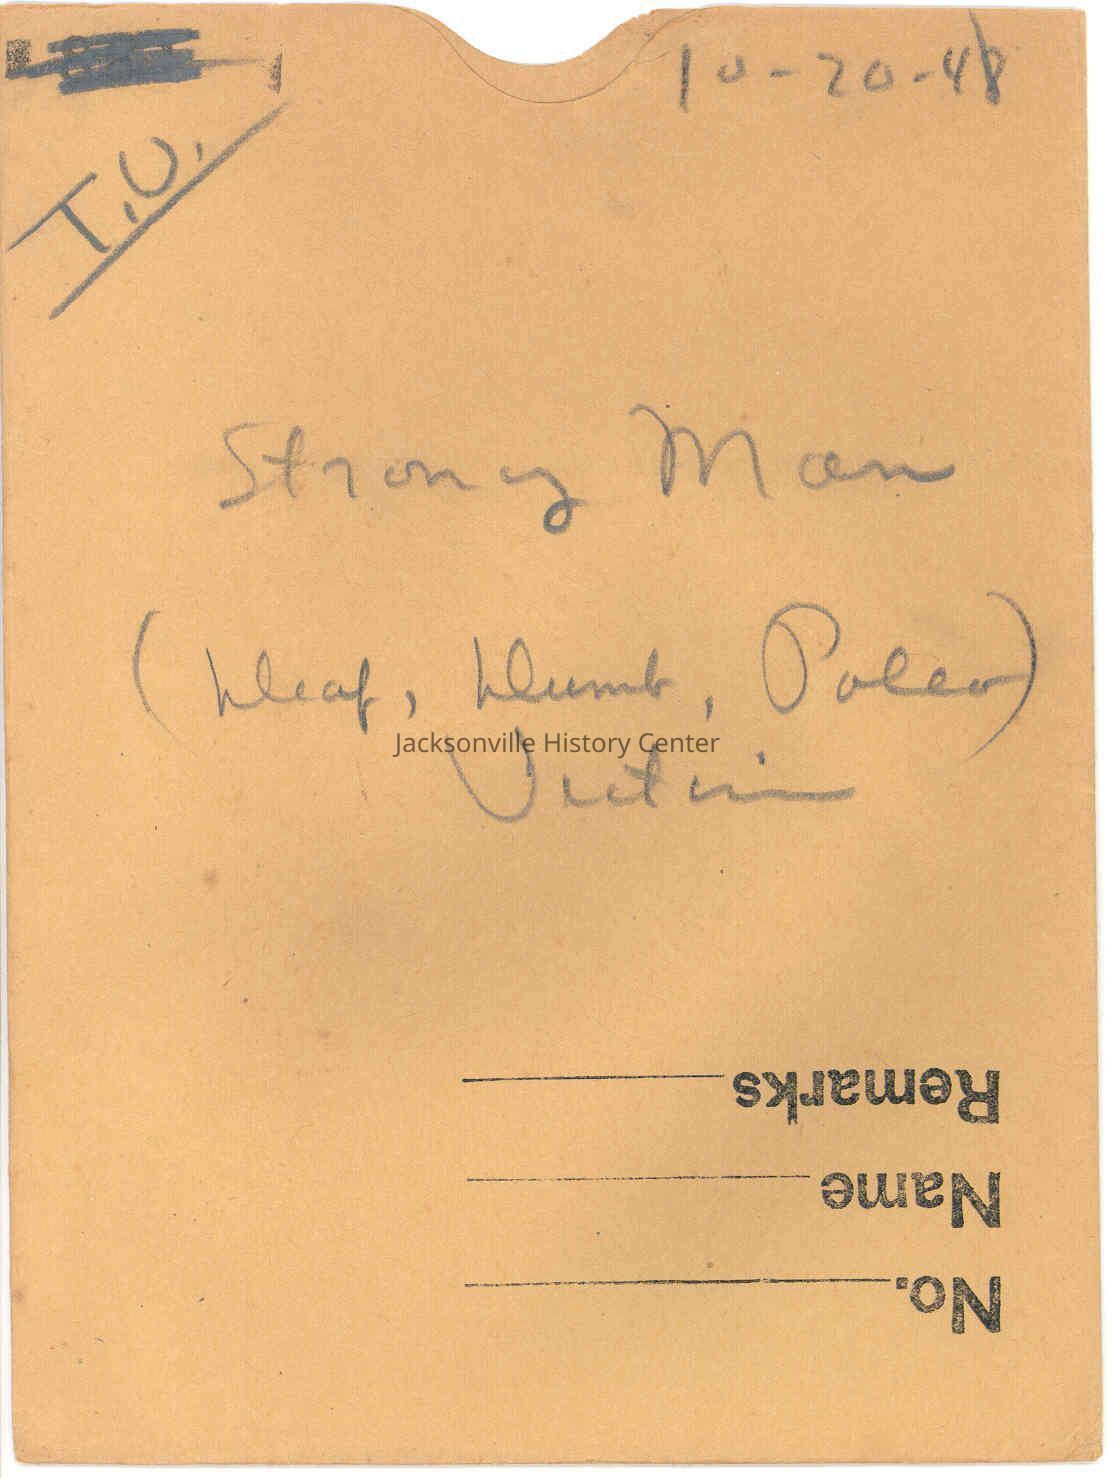 10-20-48
T.U.
Strong Man
(Deaf, Dumb, Poleo)
Jacksonville History Center
Victim
Remarks
Name
No.